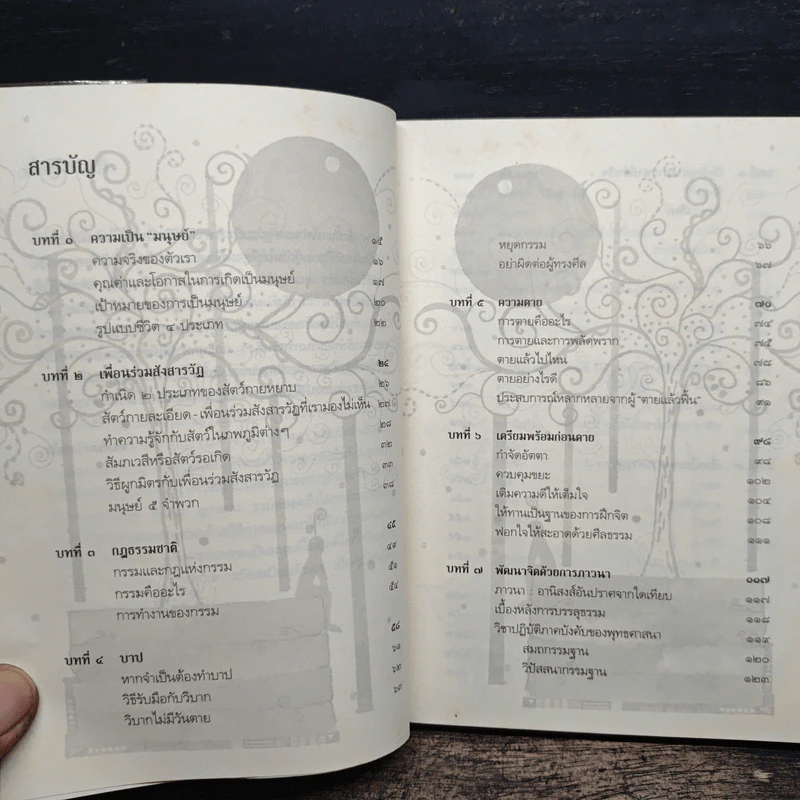 สารบัญ
บทที่ ๑ ความเป็น "มนุษย์" ๑๕
ความจริงของตัวเรา ๑๖
คุณค่าและโอกาสในการเกิดเป็นมนุษย์ ๑๗
เป้าหมายของการเป็นมนุษย์ ๒๐
รูปแบบชีวิต ๔ ประเภท ๒๒
บทที่ ๒ เพื่อนร่วมสังสารวัฏ ๒๔
กำเนิด ๒ ประเภทของสัตว์กายหยาบ ๒๖
สัตว์กายละเอียด - เพื่อนร่วมสังสารวัฏที่เรามองไม่เห็น ๒๗
ทำความรู้จักกับสัตว์ในภพภูมิต่างๆ ๒๘
สัมภเวสีหรือสัตว์รอเกิด ๓๒
วิธีผูกมิตรกับเพื่อนร่วมสังสารวัฏ ๓๓
มนุษย์ ๕ จำพวก ๓๘
บทที่ ๓ กฎธรรมชาติ ๔๕
กรรมและกฎแห่งกรรม ๔๙
กรรมคืออะไร ๕๑
การทำงานของกรรม ๕๔
บทที่ ๔ บาป ๕๘
หากจำเป็นต้องทำบาป ๖๑
วิธีรับมือกับวิบาก ๖๒
วิบากไม่มีวันตาย ๖๓
หยุดกรรม ๖๖
อย่าผิดต่อผู้ทรงศีล ๖๗
บทที่ ๕ ความตาย ๗๐
การตายคืออะไร ๗๔
การตายและการพลัดพราก ๗๕
ตายแล้วไปไหน ๗๘
ตายอย่างไรดี ๘๖
ประสบการณ์หลากหลายจากผู้ "ตายแล้วฟื้น" ๙๑
บทที่ ๖ เตรียมพร้อมก่อนตาย ๙๔
กำจัดอัตตา ๙๘
ควบคุมขยะ ๑๐๒
เติมความดีให้เต็มใจ ๑๐๔
ให้ทานเป็นฐานของการฝึกจิต ๑๐๘
ฟอกใจให้สะอาดด้วยศีลธรรม ๑๑๑
บทที่ ๗ พัฒนาจิตด้วยการภาวนา ๑๑๗
ภาวนา : อานิสงส์อันปราศจากใดเทียบ ๑๑๗
เบื้องหลังการบรรลุธรรม ๑๑๘
วิชาปฏิบัติภาคบังคับของพุทธศาสนา ๑๑๙
สมถกรรมฐาน ๑๒๐
วิปัสสนากรรมฐาน ๑๒๓